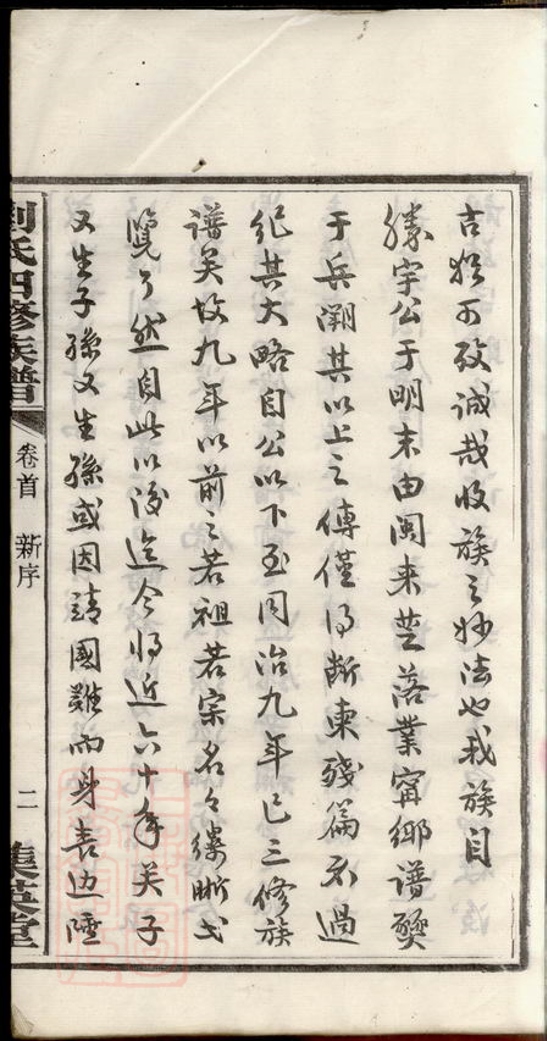 吉猶可攷誠哉收族之妙法也我族自
勝宇公于明末由閩来楚落業甯鄉譜燬
于兵溯其以上之傳僅得断柬殘篇不過
紀其大略自公以下至同治九年已三修族
譜矣故九年以前之若祖若宗名々縷晰弌
覽了然自此以後迄今将近六十年矣子
又生子孫又生孫或因請國難而身喪边陲
劉氏四修族譜
卷首 新序
二
集英堂